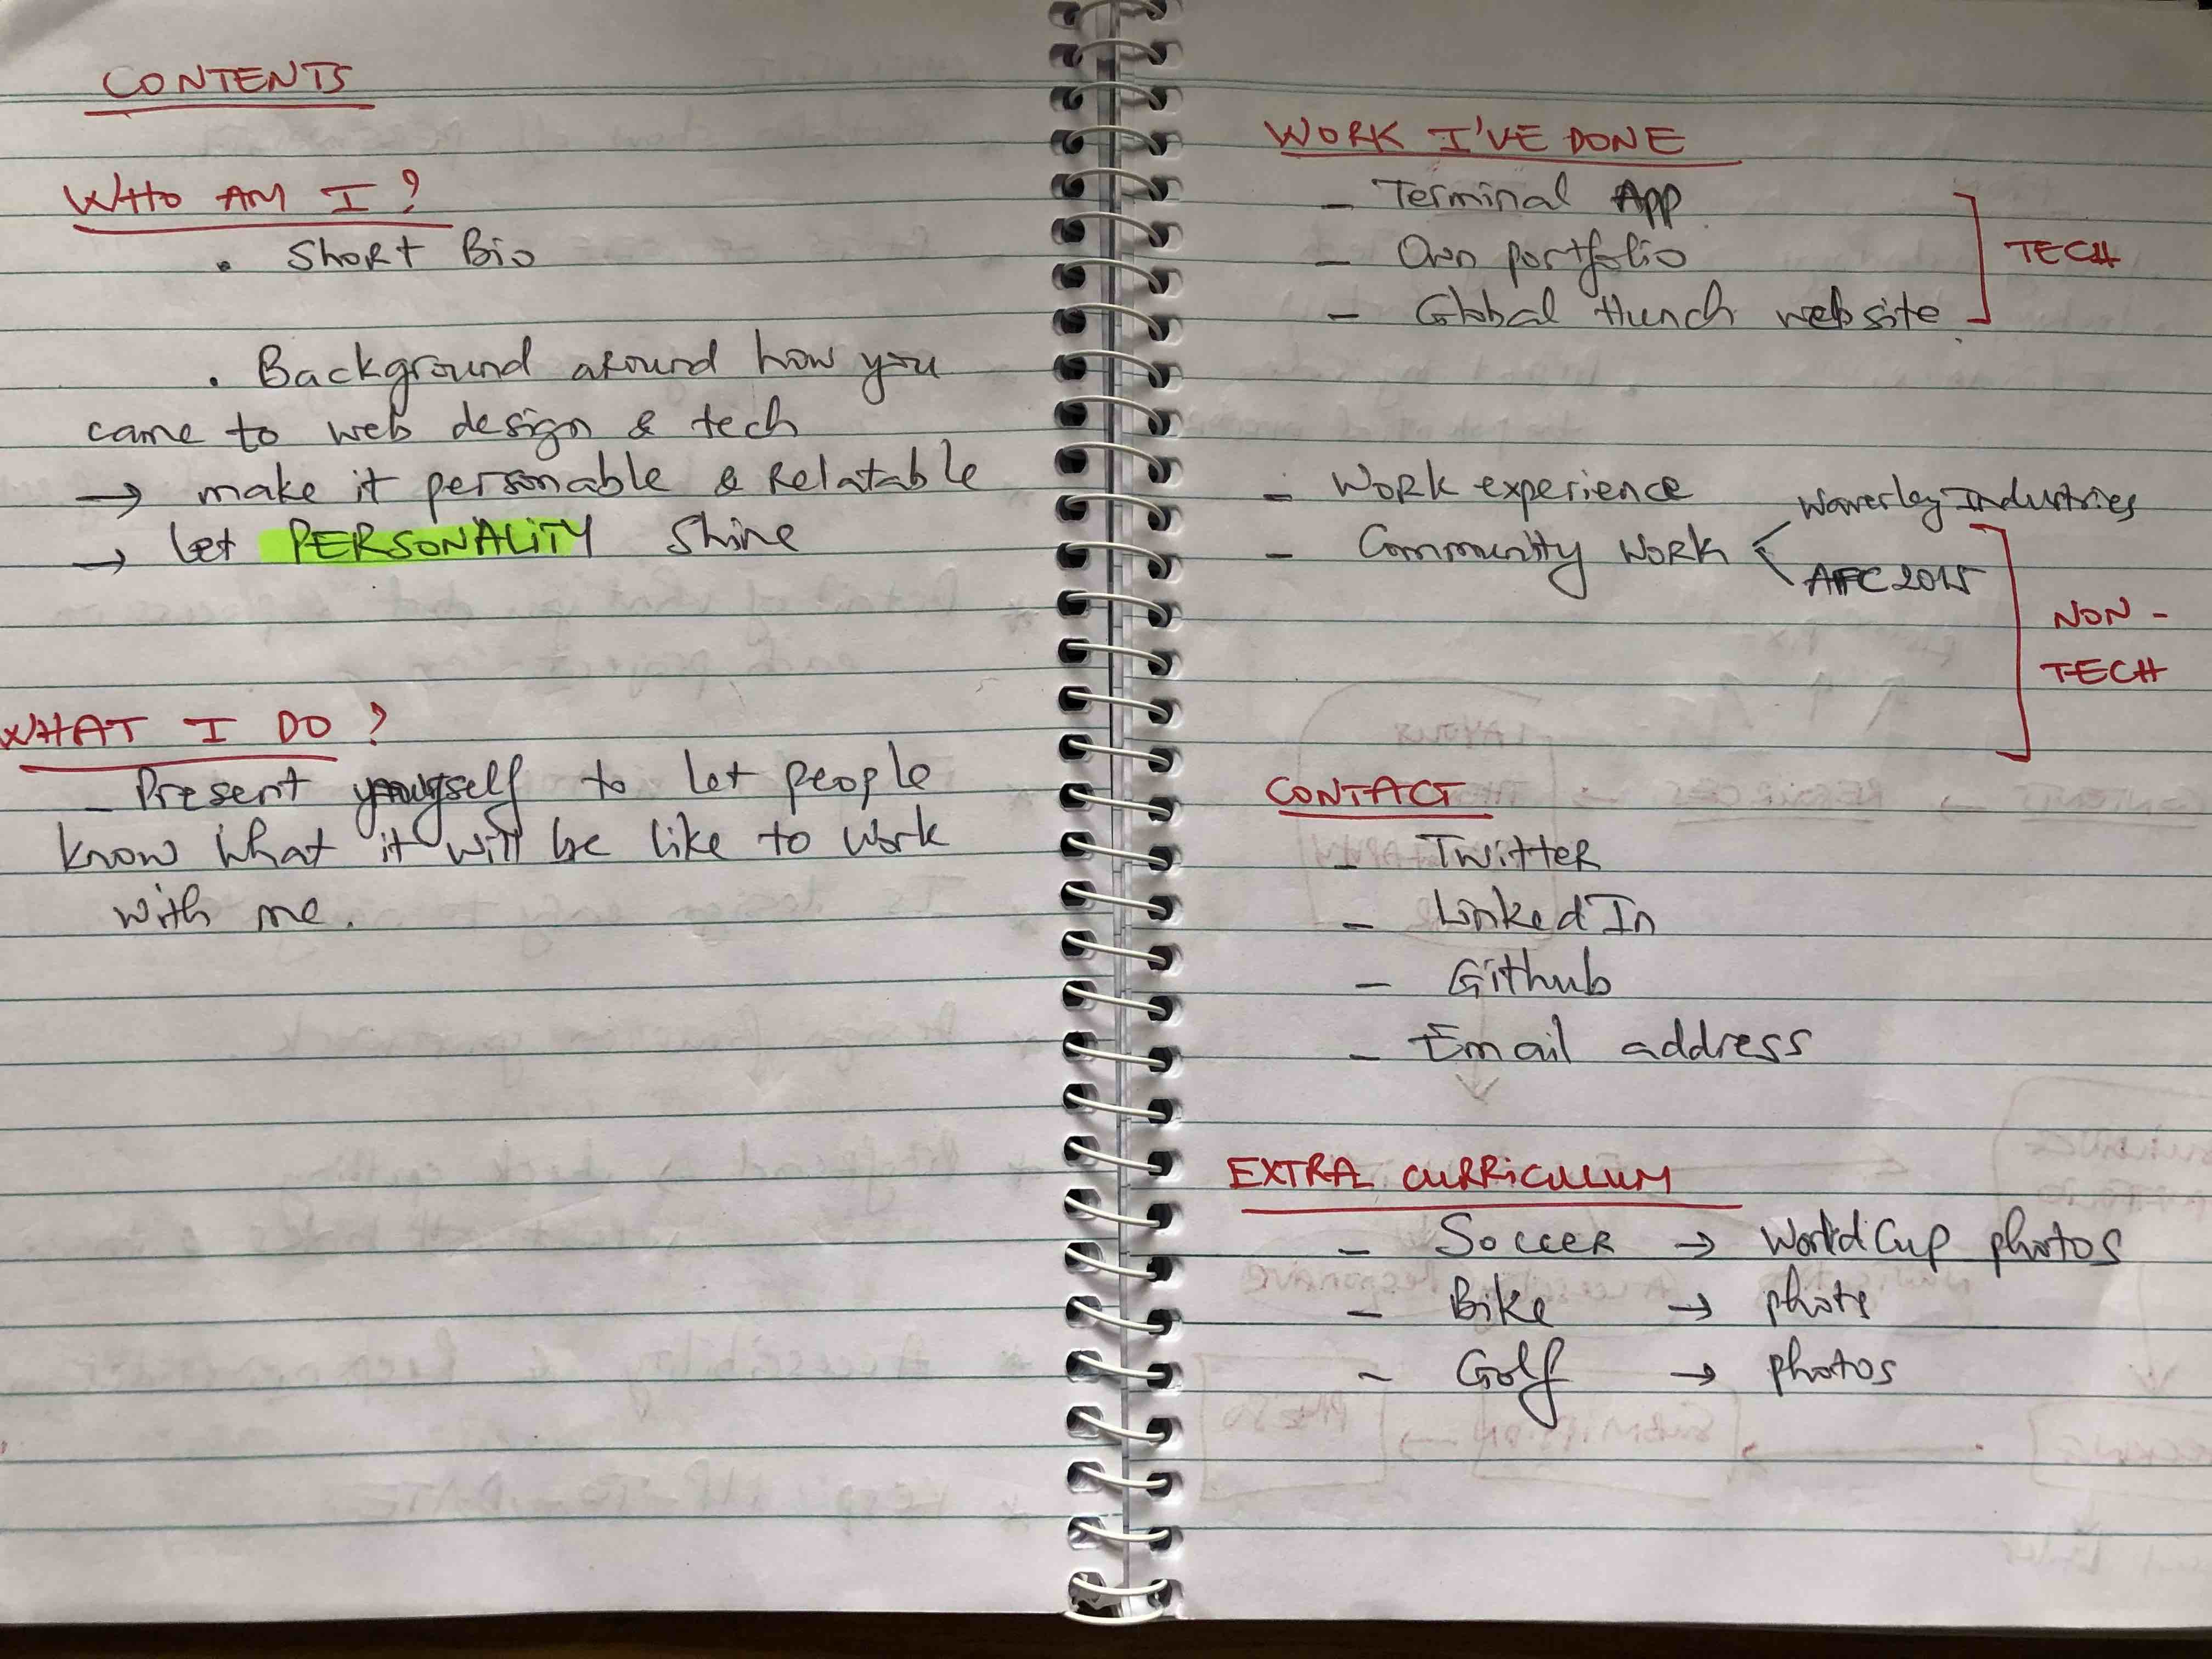 CONTENTS
WHO AM I?
• Short Bio
• Background around how you
came to web design & tech
→ make it personable & Relatable
→ let PERSONALITY Shine
WHAT I DO?
- Present yourself to let people
know what it will be like to work
with me.
WORK I'VE DONE
- Terminal App
- Own portfolio
- Global Hunch website
TECH
- Work experience
- Community Work
Waverley Industries
AFC 2015
NON-
TECH
CONTACT
- Twitter
- LinkedIn
- Github
- Email address
EXTRA CURRICULUM
- Soccer → World Cup photos
- Bike →
- Golf → photos